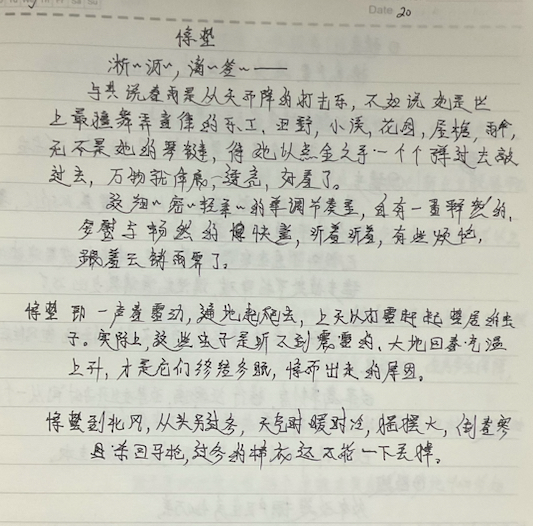 Date 20
惊蛰
淅~沥~，滴~答~——
与其说春雨是从天而降的打击乐，不如说她是世
上最擅舞弄旋律的乐工，田野，小溪，花园，屋檐，雨伞，
无不是她的琴键，待她以点金之手一个个弹过去敲
过去，万物就洋房，透亮，
这细~密~轻柔~的单调节奏里，自有一番释然的
与畅然的愉快意，听着听着，有些烦忧，
跟着云销雨霁了。
惊蛰 即一声春雷动，遍地起爬虫，上天以打雷惊起蛰居的虫
子。实际上，这些虫子是听不到雷声的，大地回春气温
上升，才是它们终结冬眠，惊而出走的原因。
惊蛰刮北风，从头另过冬，天气时暖时冷，摇摆大，倒春寒
且杀回马枪，过冬的棉衣还不能一下丢掉。